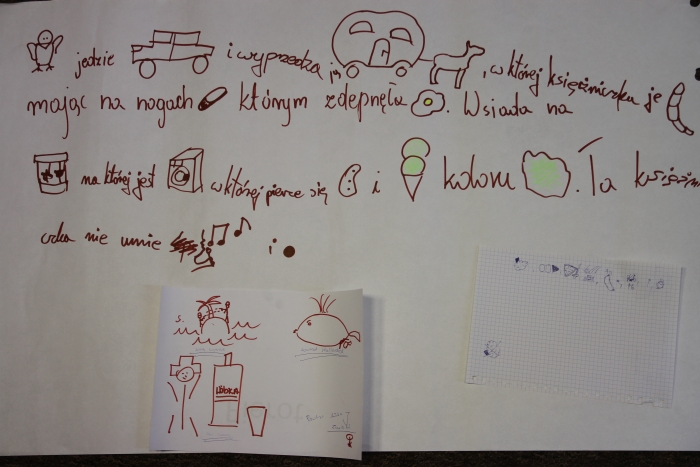 jedzie i wyprzedza ją , w której księżniczka je
mając na nogach którym zdepnęła . Wsiada na
na której jest w której pierce się i koloru . Ta księżni
czka nie umie i
WÓDKA